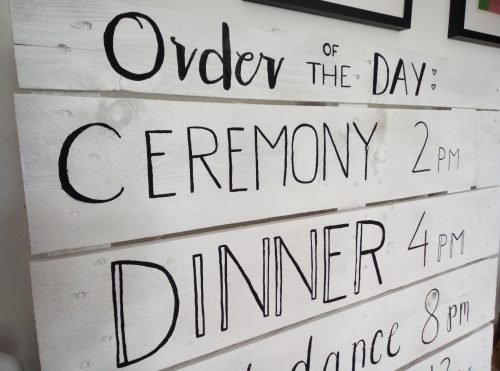 Order OF THE DAY:
CEREMONY 2PM
DINNER 4PM
dance 8pm